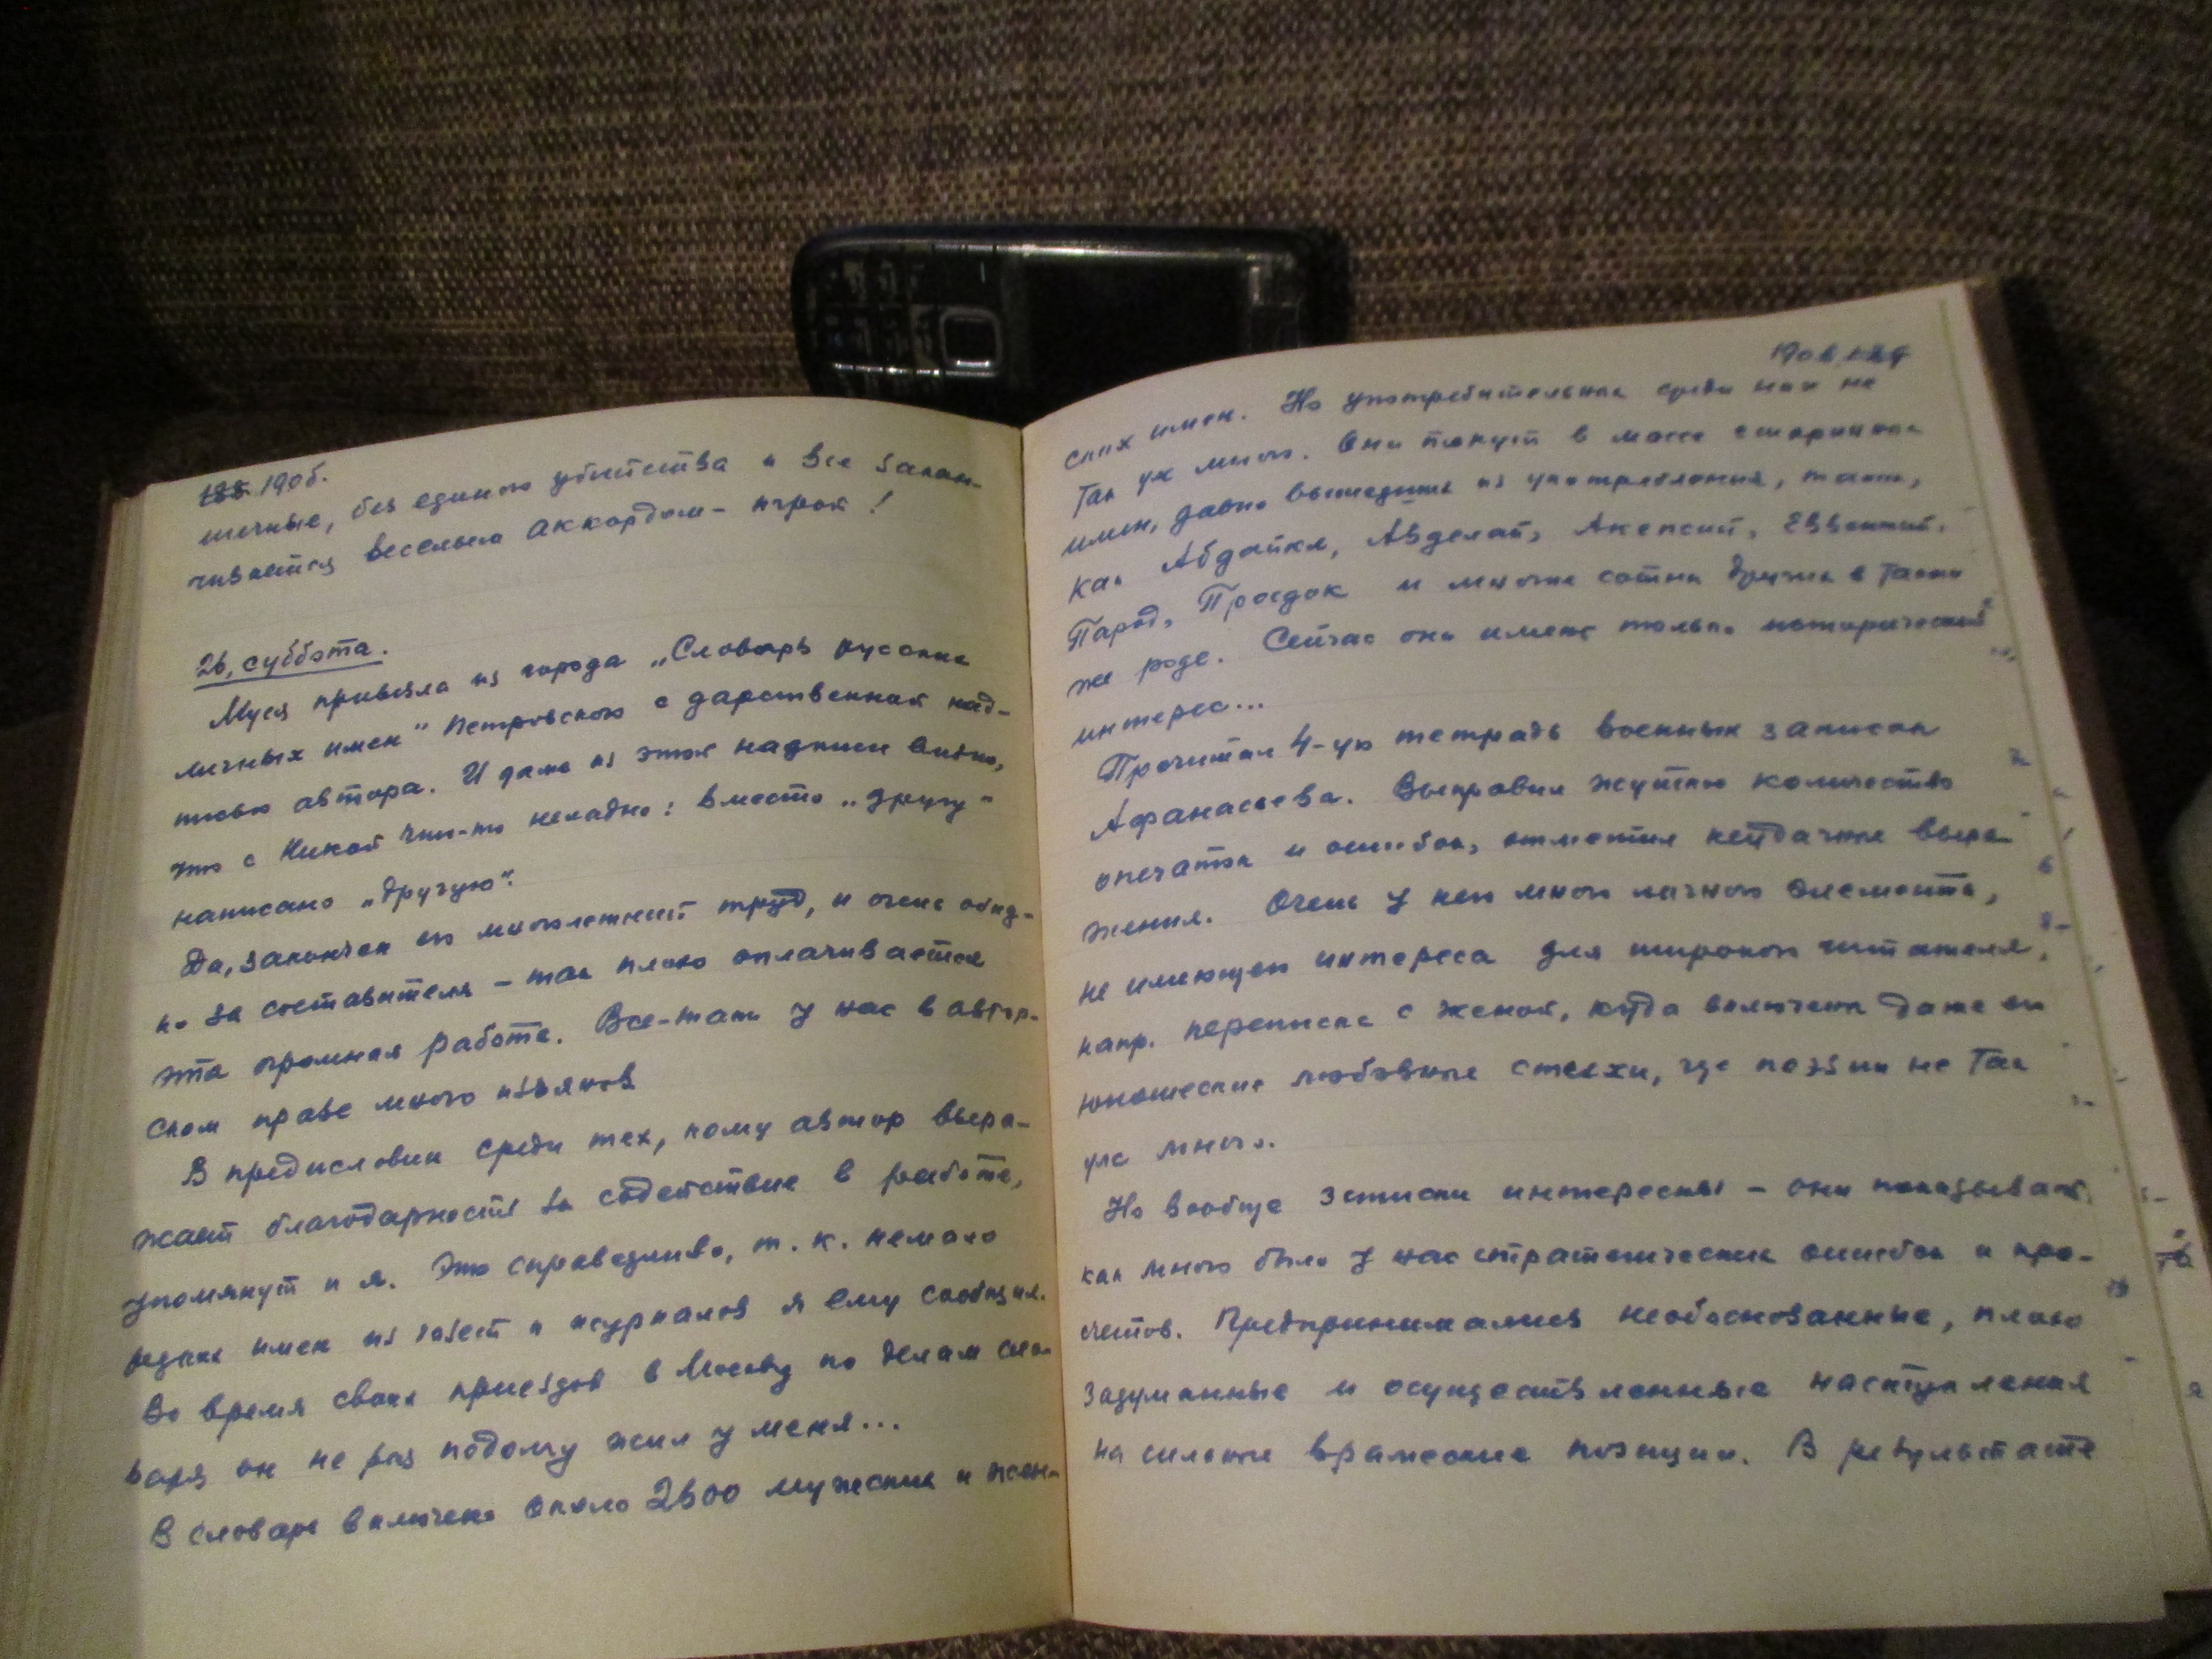 188. 1905.
шечные, без единого убийства и все закан-
чивается веселым аккордом - игрой!
26, суббота.
Муся привезла из города „Словарь русских
личных имен" Петровского с дарственной над-
писью автора. И даже из этой надписи видно,
что с Никой что-то неладно: вместо „другу"
написано „другую".
Да, закончен его многолетний труд, и очень обид-
но за составителя - так плохо оплачивается
эта огромная работа. Все-таки у нас в автор-
ском праве много изъянов
В предисловии среди тех, кому автор выра-
жает благодарность за содействие в работе,
упомянут и я. Это справедливо, т. к. немало
редких имен из газет и журналов я ему сообщил.
Во время своих приездов в Москву по делам сло-
варя он не раз подолгу жил у меня...
В словарь включено около 2600 мужских и жен-
1906.
ских имен. Но употребительных среди них не
так уж много. Они тонут в массе старинных
имен, давно вышедших из употребления, таких,
как Абдайкл, Авделай, Акепсий, Еввентий,
Парод, Проедок и многие сотни других в таком
же роде. Сейчас они имеют только исторический
интерес...
Прочитал 4-ую тетрадь военных записок
Афанасьева. Выправил жуткое количество
опечаток и ошибок, отметил неудачные выра-
жения. Очень у него много личного элемента,
не имеющего интереса для широкого читателя,
напр. переписка с женой, куда включены даже его
юношеские любовные стихи, где поэзии не так
уж много.
Но вообще записки интересны - они показывают,
как много было у нас стратегических ошибок и про-
счетов. Предпринимались необоснованные, плохо
задуманные и осуществленные наступления
на сильные вражеские позиции. В результате